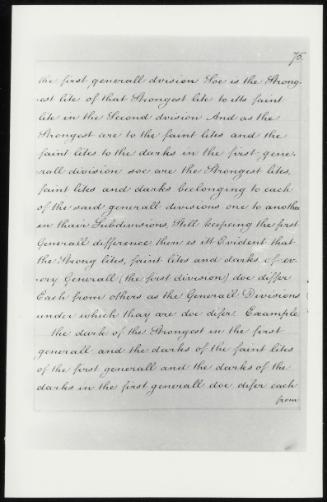 75.
the first generall division Soe is the Strong-
est lite of that Strongest lite to its faint
lite in the Second dvision And as the
Strongest are to the faint lites and the
faint lites to the darks in the first gene-
rall division soe are the Strongest lites,
faint lites and darks beelonging to each
of the said generall divisions one to anotha
in thair Subdivisions, Still keeping the first
Generall difference then is itt Evident that
the Strong lites, faint lites and darks of ev-
ery Generall (the first division) doe differ
Each from others as the Generall Divisions
under which thay are doe difer Example
the dark of the Strongest in the first
generall and the darks of the faint lites
of the first generall and the darks of the
darks in the first generall doe difer each
from